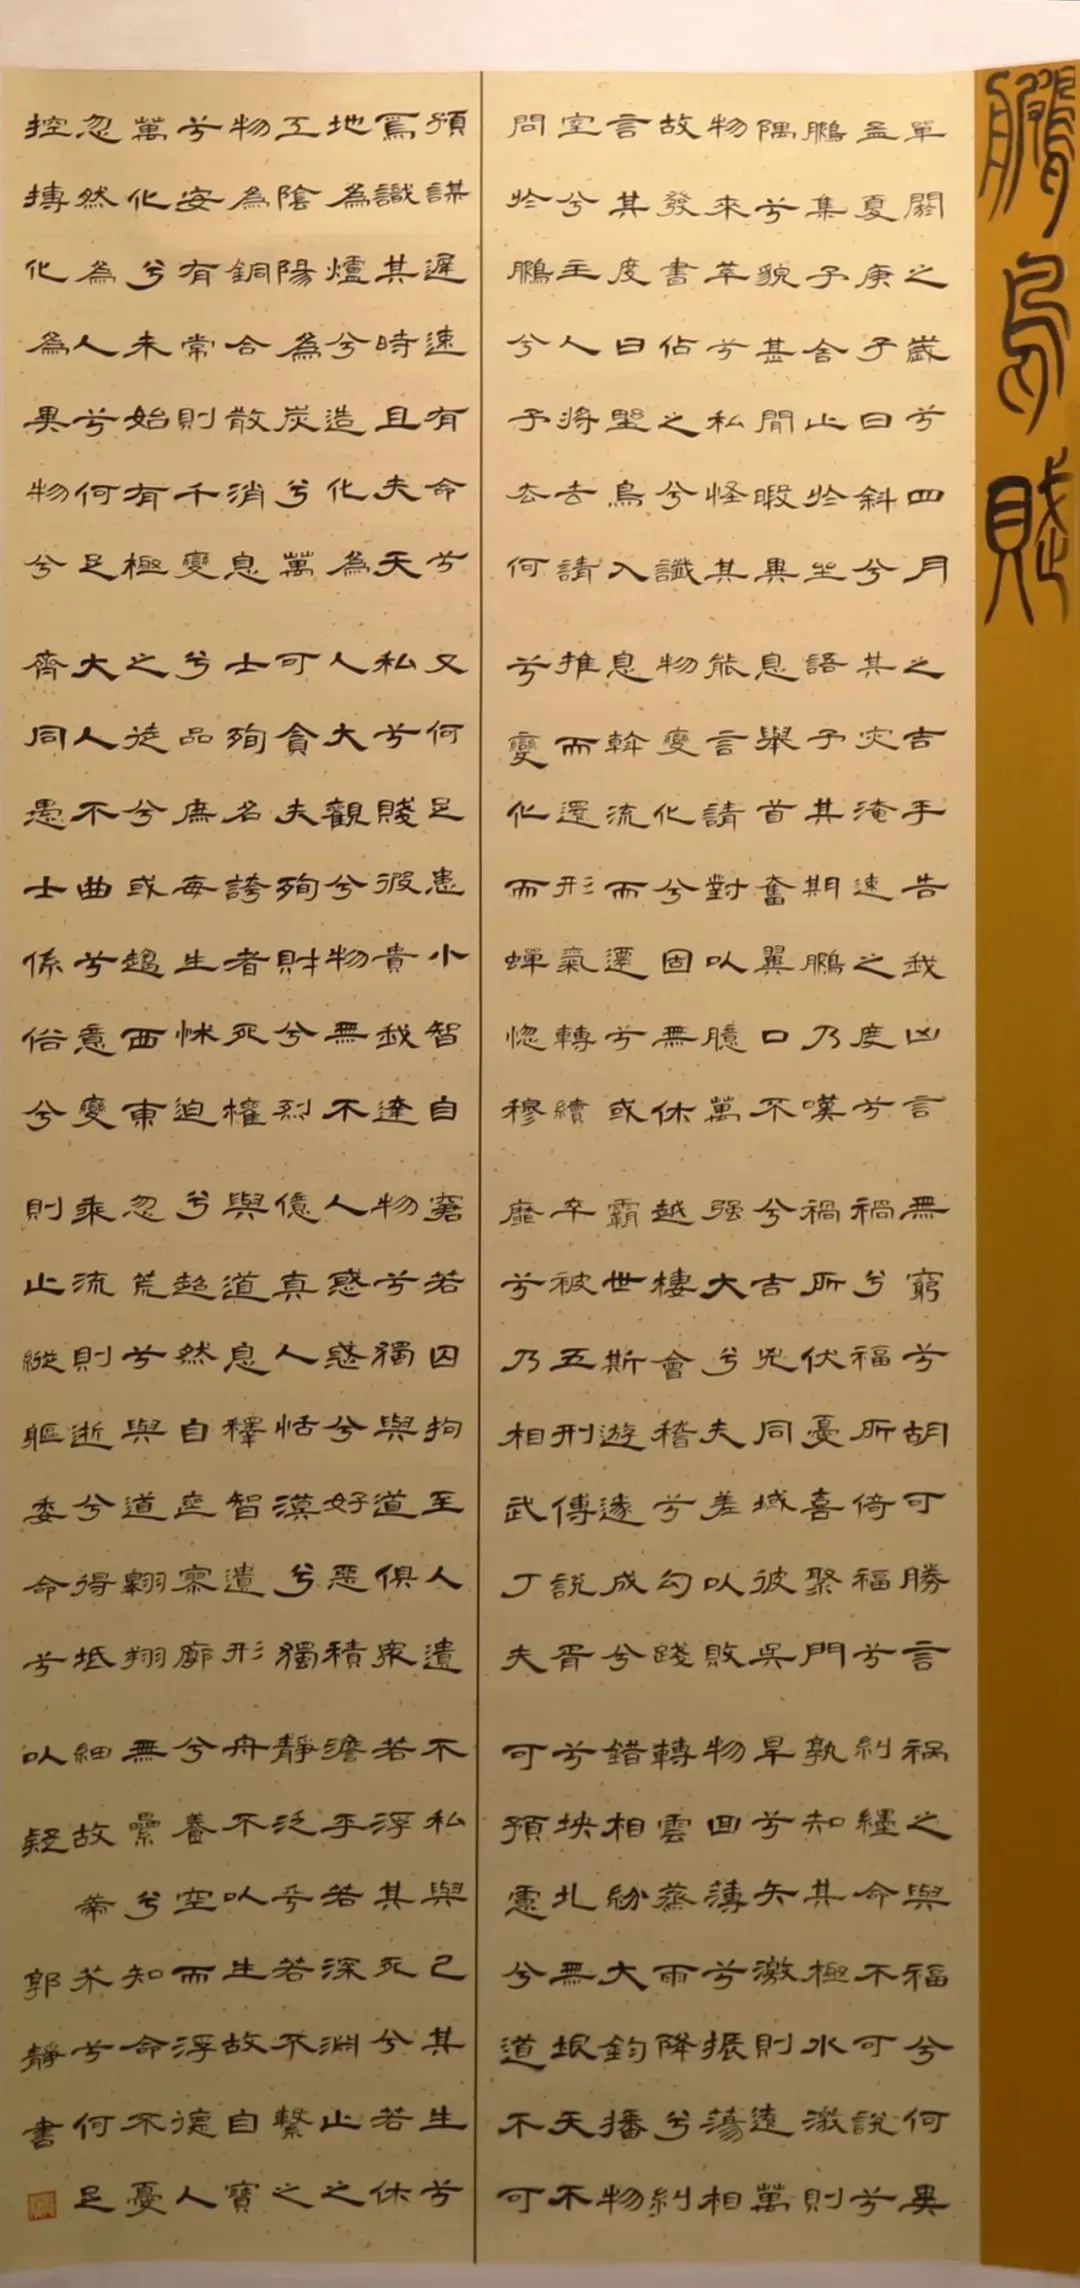 鵩鳥賦
單閼之歲兮四月
孟夏庚子日斜兮
鵩集子舍止於坐
隅兮貌甚閒暇異
物來萃兮私怪其
故發書佔之兮讖
言其度曰野鳥入
室兮主人將去請
問於鵩兮予去何
之吉乎告我凶言
其灾淹速之度兮
語予其期鵩乃嘆
息舉首奮翼口不
能言請對以臆萬
物變化兮固無休
息斡流而遷兮或
推而還形氣轉續
兮變化而蟬惚穆
無窮兮胡可勝言
禍兮福所倚福兮
禍所伏憂喜聚門
兮吉凶同域彼吳
强大兮夫差以敗
越棲會稽兮勾踐
霸世斯遊遂成兮
卒被五刑傅說胥
靡兮乃相武丁夫
禍之與福兮何異
糾纆命不可說兮
孰知其極水激則
旱兮矢激則遠萬
物回薄兮振蕩相
轉雲蒸雨降兮糾
錯相紛大鈞播物
兮坱圠無垠天不
可預慮兮道不可
預謀遲速有命兮
焉識其時且夫天
地為爐兮造化為
工陰陽為炭兮萬
物為銅合散消息
兮安有常則千變
萬化兮未始有極
忽然為人兮何足
控摶化為異物兮
又何足患小智自
私兮賤彼貴我達
人大觀兮物無不
可貪夫殉財兮烈
士殉名誇者死權
兮品庶每生怵迫
之徒兮或趨西東
大人不曲兮意變
齊同愚士係俗兮
窘若囚拘至人遺
物兮獨與道俱衆
人惑惑兮好惡積
億真人恬漠兮獨
與道息釋智遺形
兮超然自喪寥廓
忽荒兮與道翱翔
乘流則逝兮得坻
則止縱軀委命兮
不私與己其生兮
若浮其死兮若休
澹乎若深淵止之
靜泛乎若不繫之
舟不以生故自寶
兮養空而浮德人
無纍兮知命不憂
細故蒂芥兮何足
以疑 郭靜書